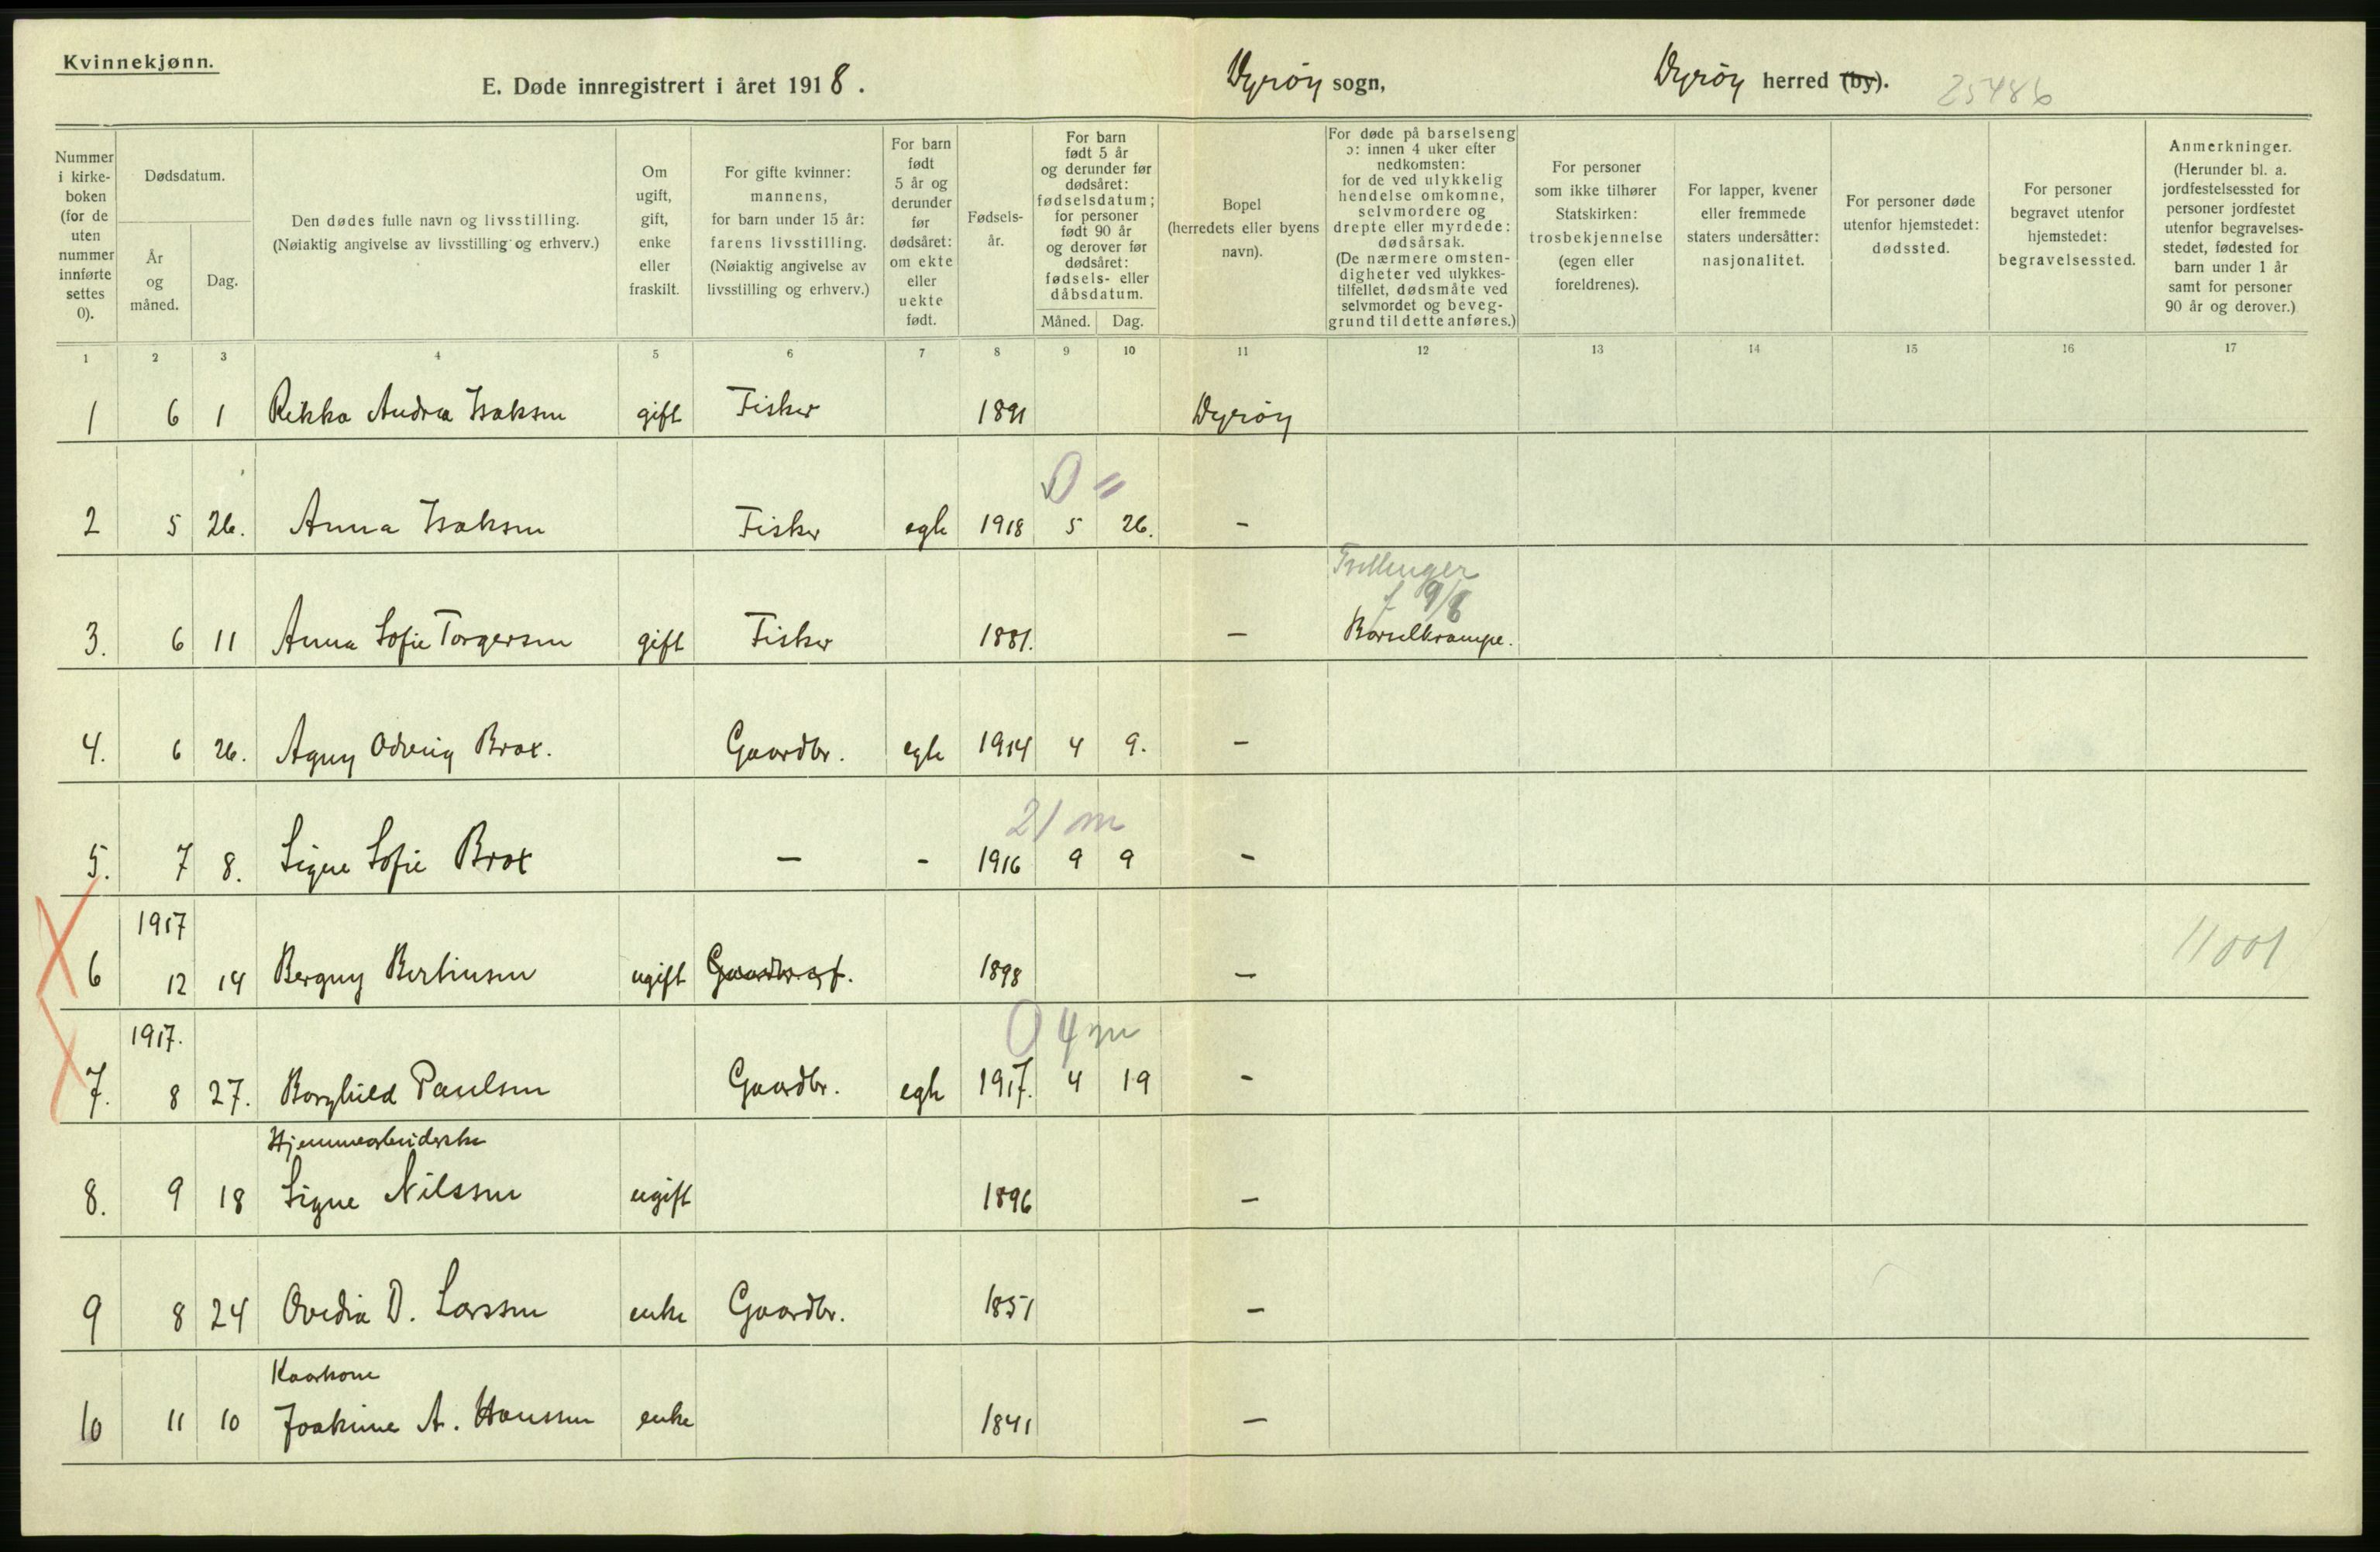 Kvinnekjønn.
E. Døde innregistrert i året 1918. Dyrøy sogn, Dyrøy herred (by). 25486
Nummer i kirke-boken (for de uten nummer innførte settes 0).
Dødsdatum.
År og måned.
Dag.
Den dødes fulle navn og livsstilling.
(Nøiaktig angivelse av livsstilling og erhverv.)
Om ugift, gift, enke eller fraskilt.
For gifte kvinner: mannens, for barn under 15 år: farens livsstilling. (Nøiaktig angivelse av livsstilling og erhverv.)
For barn født 5 år og derunder før dødsåret: om ekte eller uekte født.
Fødsels-år.
For barn født 5 år og derunder før dødsåret: fødselsdatum; for personer født 90 år og derover før dødsåret: fødsels- eller dåbsdatum.
Måned. Dag.
Bopel (herredets eller byens navn).
For døde på barselseng ɔ: innen 4 uker efter nedkomsten: for de ved ulykkelig hendelse omkomne, selvmordere og drepte eller myrdede: dødsårsak. (De nærmere omsten-digheter ved ulykkes-tilfellet, dødsmåte ved selvmordet og beveg-grund til dette anføres.)
For personer som ikke tilhører Statskirken: trosbekjennelse (egen eller foreldrenes).
For lapper, kvener eller fremmede staters undersåtter: nasjonalitet.
For personer døde utenfor hjemstedet: dødssted.
For personer begravet utenfor hjemstedet: begravelsessted.
Anmerkninger. (Herunder bl. a. jordfestelsessted for personer jordfestet utenfor begravelses-stedet, fødested for barn under 1 år samt for personer 90 år og derover.)
1 2 3 4 5 6 7 8 9 10 11 12 13 14 15 16 17
1 6 1 Rikka Andrea Isaksen gift Fisker 1891 Dyrøy
0 =
2 5 26. Anna Isaksen Fisker egte 1918 5 26. -
Tvillinger
f 9/6
3. 6 11 Anna Sofie Torgersen gift Fisker 1881. - Barselkrampe.
4. 6 26. Agny Odveig Brox. Gaardbr. egte 1914 4 9. -
21 m
5. 7 8. Signe Sofie Brox - - 1916 9 9 -
1917
6 12 14 Bergny Bertinsen ugift 1898 - 11001
1917. 0 4 m
7. 8 27. Borghild Paulsen Gaardbr. egte 1917. 4 19 -
Hjemmearbeiderske
8. 9 18 Signe Nilssen ugift 1896 -
9 8 24 Ovedia D. Larssen enke Gaardbr. 1851 -
Kaarkone
10 11 10 Joakime A. Hanssen enke 1841 -